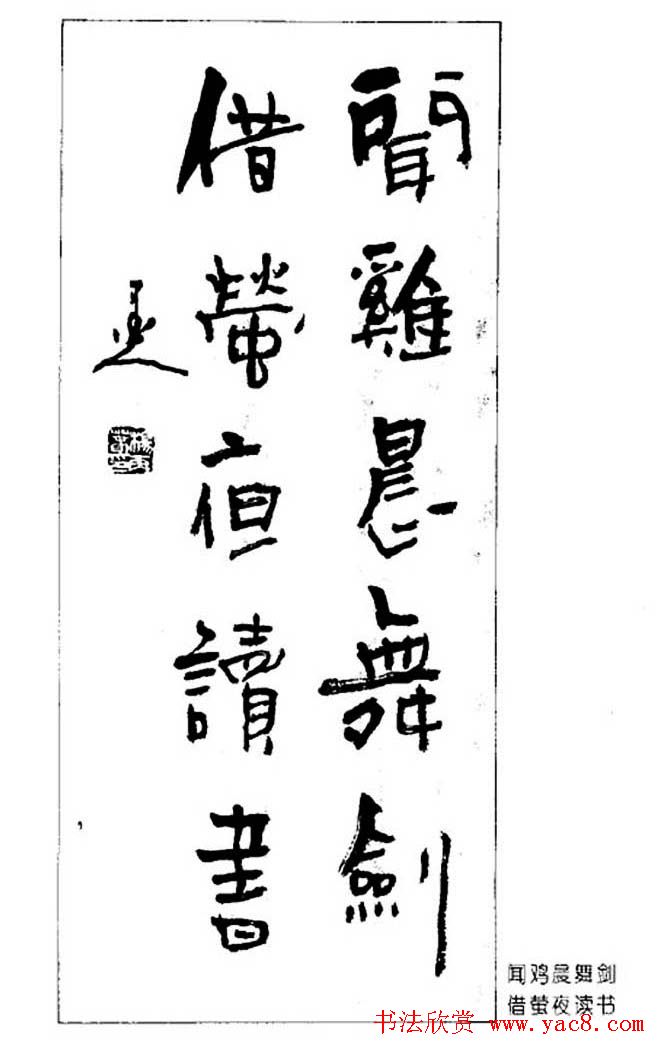 聞雞晨舞劍
借螢夜讀書
闻鸡晨舞剑
借萤夜读书
书法欣赏 www.yac8.com